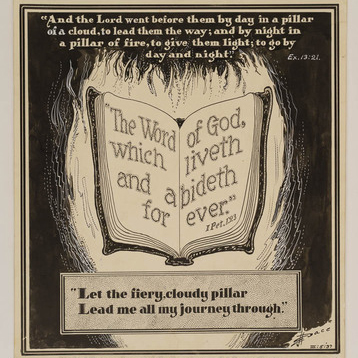 "And the Lord went before them by day in a pillar
of a cloud, to lead them the way; and by night in
a pillar of fire, to give them light; to go by
day and night:"
Ex. 13:21.
"The Word of God,
which liveth
and abideth
for ever."
1 Pet. 1:23
"Let the fiery, cloudy pillar
Lead me all my journey through."